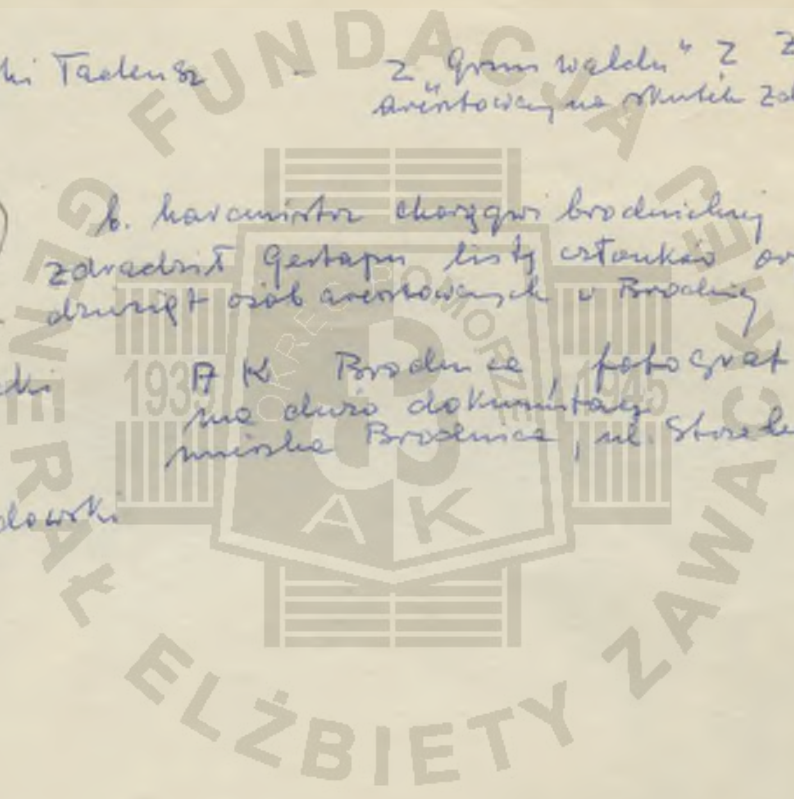 ki Tadeusz - z "Grunwaldu" z Z
aresztowany na skutek zd
b. harcmistrz chorągwi brodnickiej
zdradził Gestapu listę członków or
dziesiąt osób aresztowanych w Brodnicy
ski AK Brodnica, fotograf
ma dużo dokumentacji
mieszka Brodnica, ul. Strzele
dowski
FUNDACJA GENERAŁ ELŻBIETY ZAWACKIEJ
OKRĘG POMORZE
1939 1945
AK